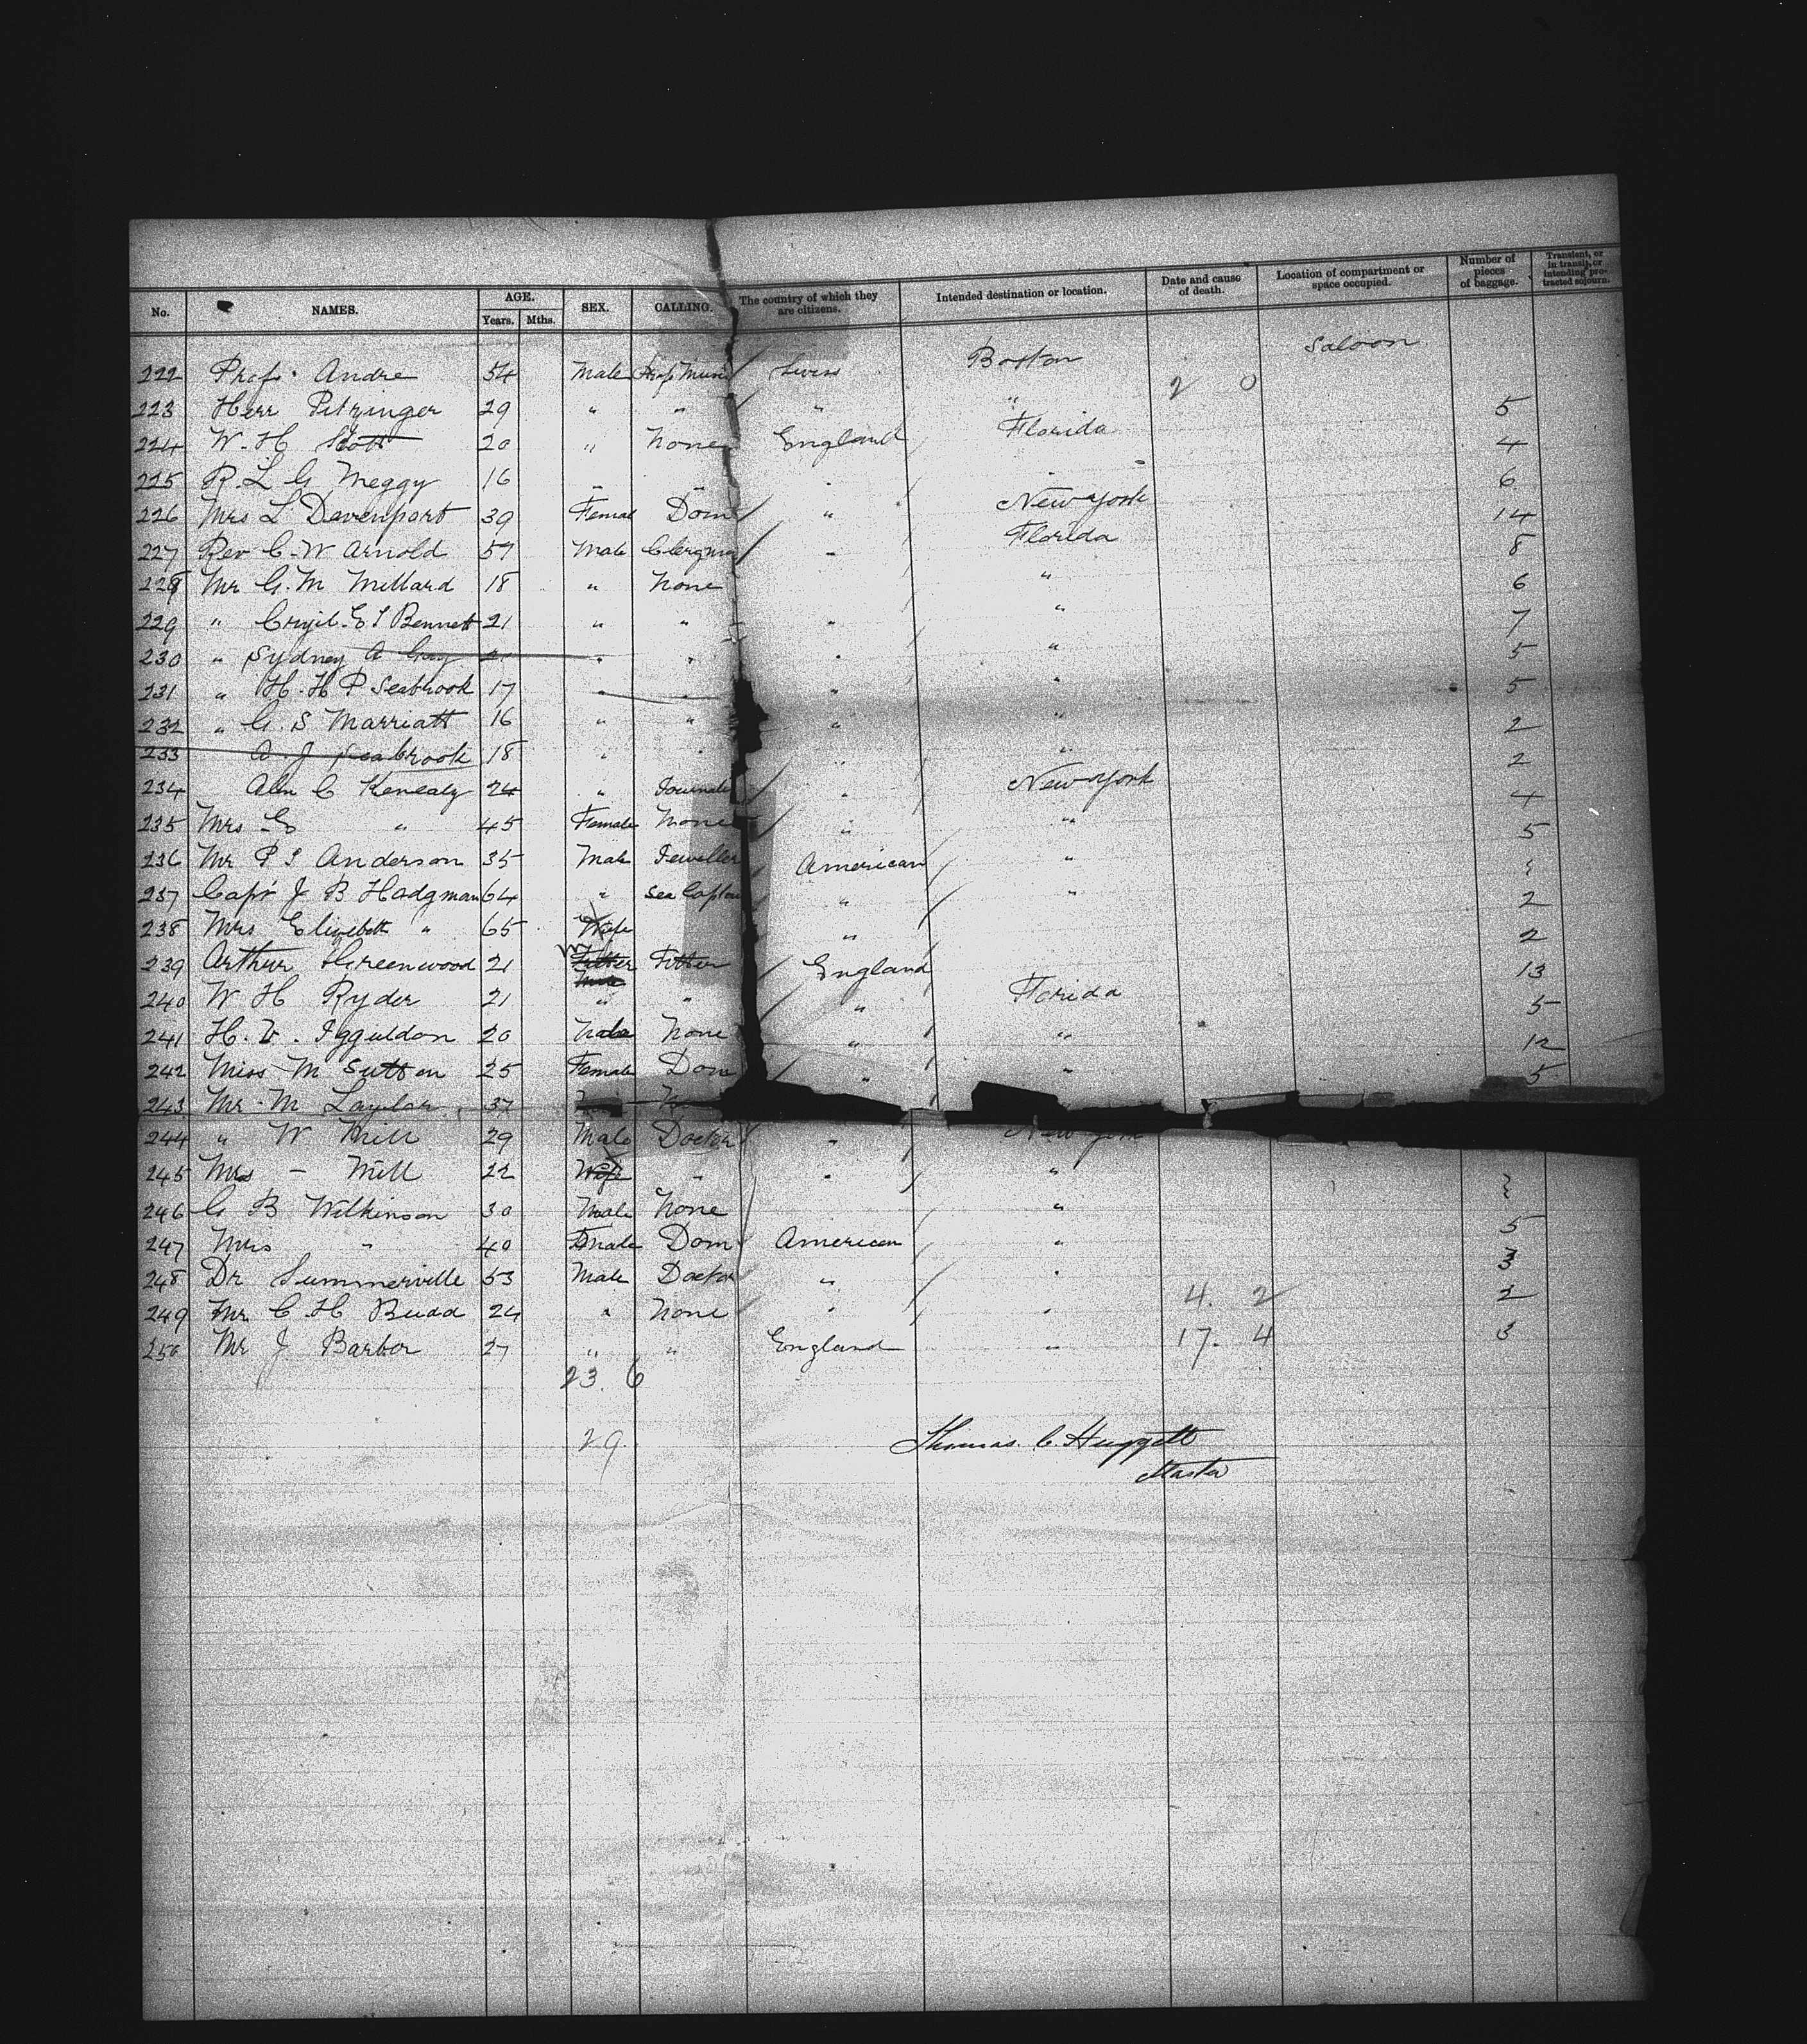 No. NAMES. AGE. Years. Mths. SEX. CALLING. The country of which they are citizens. Intended destination or location. Date and cause of death. Location of compartment or space occupied. Number of pieces of baggage. Transient, or in transit, or intending protracted sojourn.
222 Profr Andre 54 Male Prof Music Swiss Boston 2 0 Saloon
223 Herr Pitzinger 29 " " " " 5
224 W. H Scott 20 " None England Florida 4
225 R. L G Meggy 16 " " " " 6
226 Mrs L Davenport 39 Femal Dom " New York 14
227 Rev C. W Arnold 57 Male Clergman " Florida 8
228 Mr G. M Millard 18 " None " 6
229 " E S Bennett 21 " " " " 7
230 " Sydney A Gay 21 " " " " 5
231 " H. H P Seabrook 17 " " " " 5
232 " G. S Marriatt 16 " " " " 2
233 A J Seabrook 18 " " " " 2
234 C Kenealy 24 " Journalis " New York 4
235 Mrs E " 45 Female None " " 5
236 Mr P S Anderson 35 Male Jeweller American "
237 Capt J B Hodgman 64 " Sea Captain " " 2
238 Mrs Elizebeth " 65 Wife " 2
239 Arthur Greenwood 21 Fitter Male Fitter England 13
240 W H Ryder 21 " " " Florida 5
241 H. V. Igguldon 20 Male None " " 12
242 Miss M Sutton 25 Female Dom " " 5
243 Mr. M Laylor 37
244 " W Mill 29 Male Doctor " New York
245 Mrs - Mill 22 Wife " " "
246 G B Wilkinson 30 Male None "
247 Mrs " 40 Female Dom American " 5
248 Dr Summerville 53 Male Doctor " " 3
249 Mr C H Budd 24 " None " " 4. 2 2
250 Mr J Barbor 27 " " England " 17. 4 3
23. 6
29.
Thomas. C. Huggett
Master